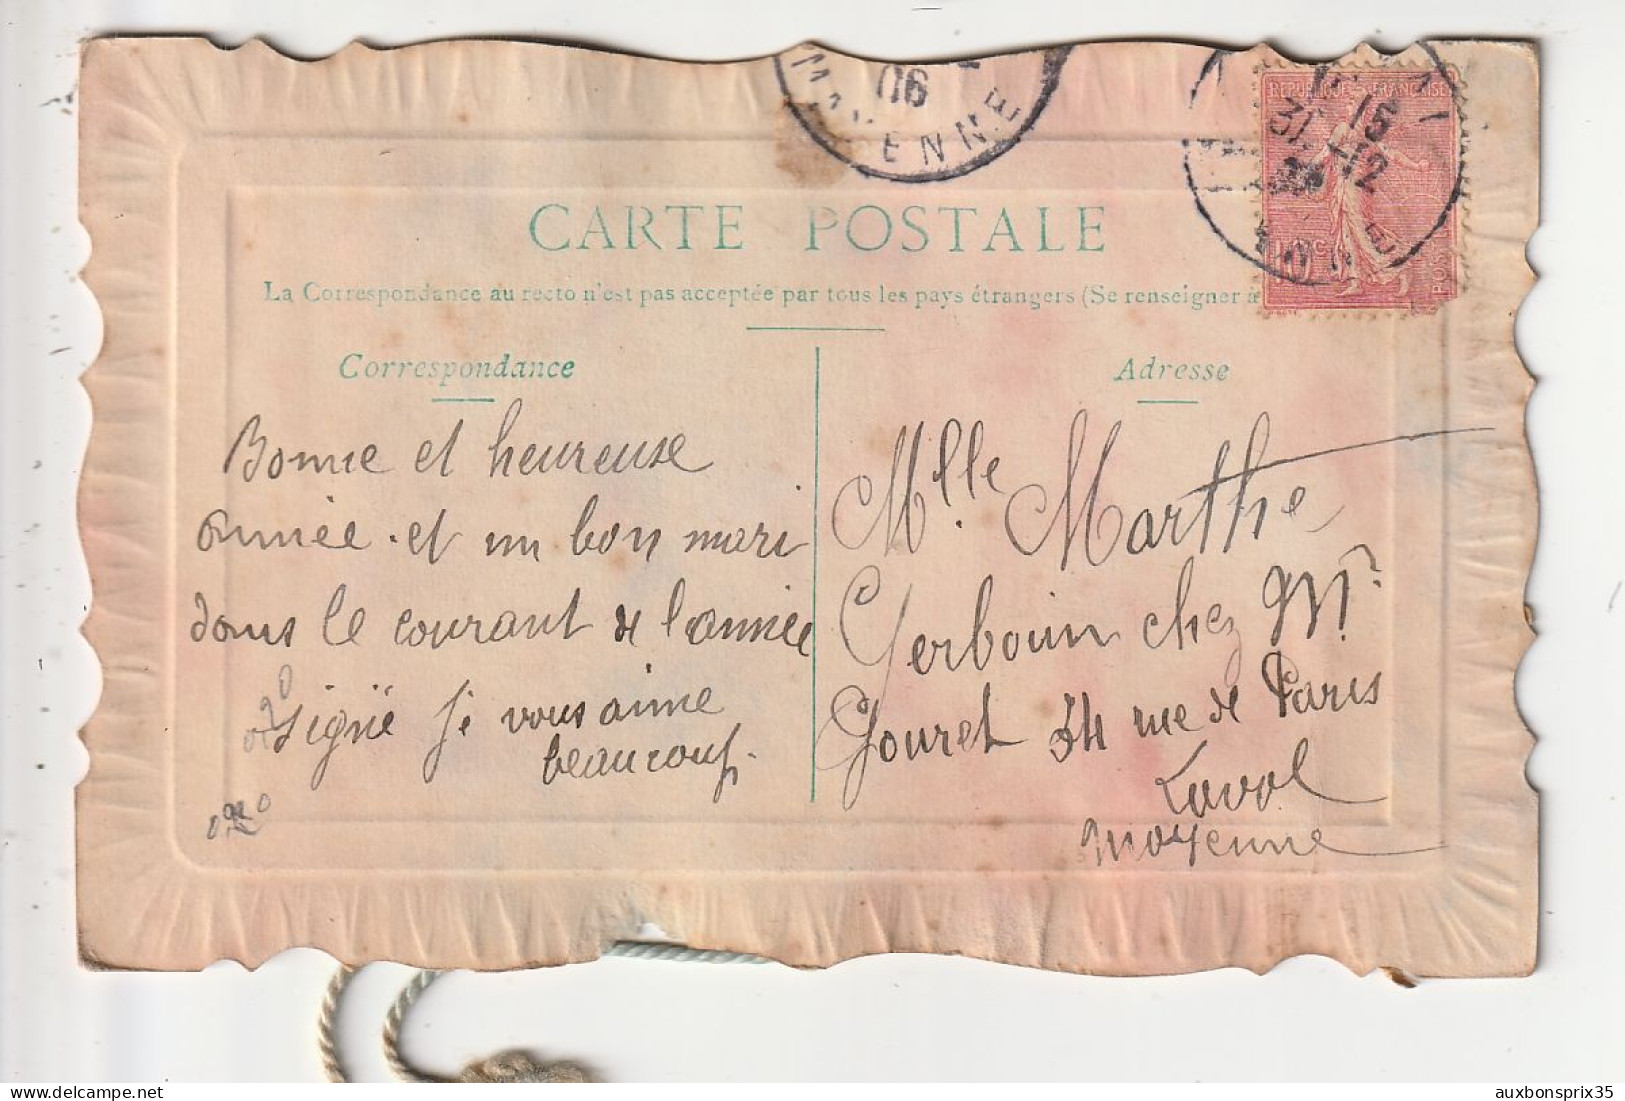 CARTE POSTALE
La Correspondance au recto n'est pas acceptée par tous les pays étrangers (Se renseigner à
Correspondance
Bonne et heureuse
année et un bon mari
dans le courant de l'année
signé je vous aime
beaucoup.
Adresse
Mlle Marthe
Gerbouin chez Mr
Gouret 34 rue de Paris
Laval
Mayenne
06
MAYENNE
REPUBLIQUE FRANÇAISE
31 12
10c
auxbonsprix35